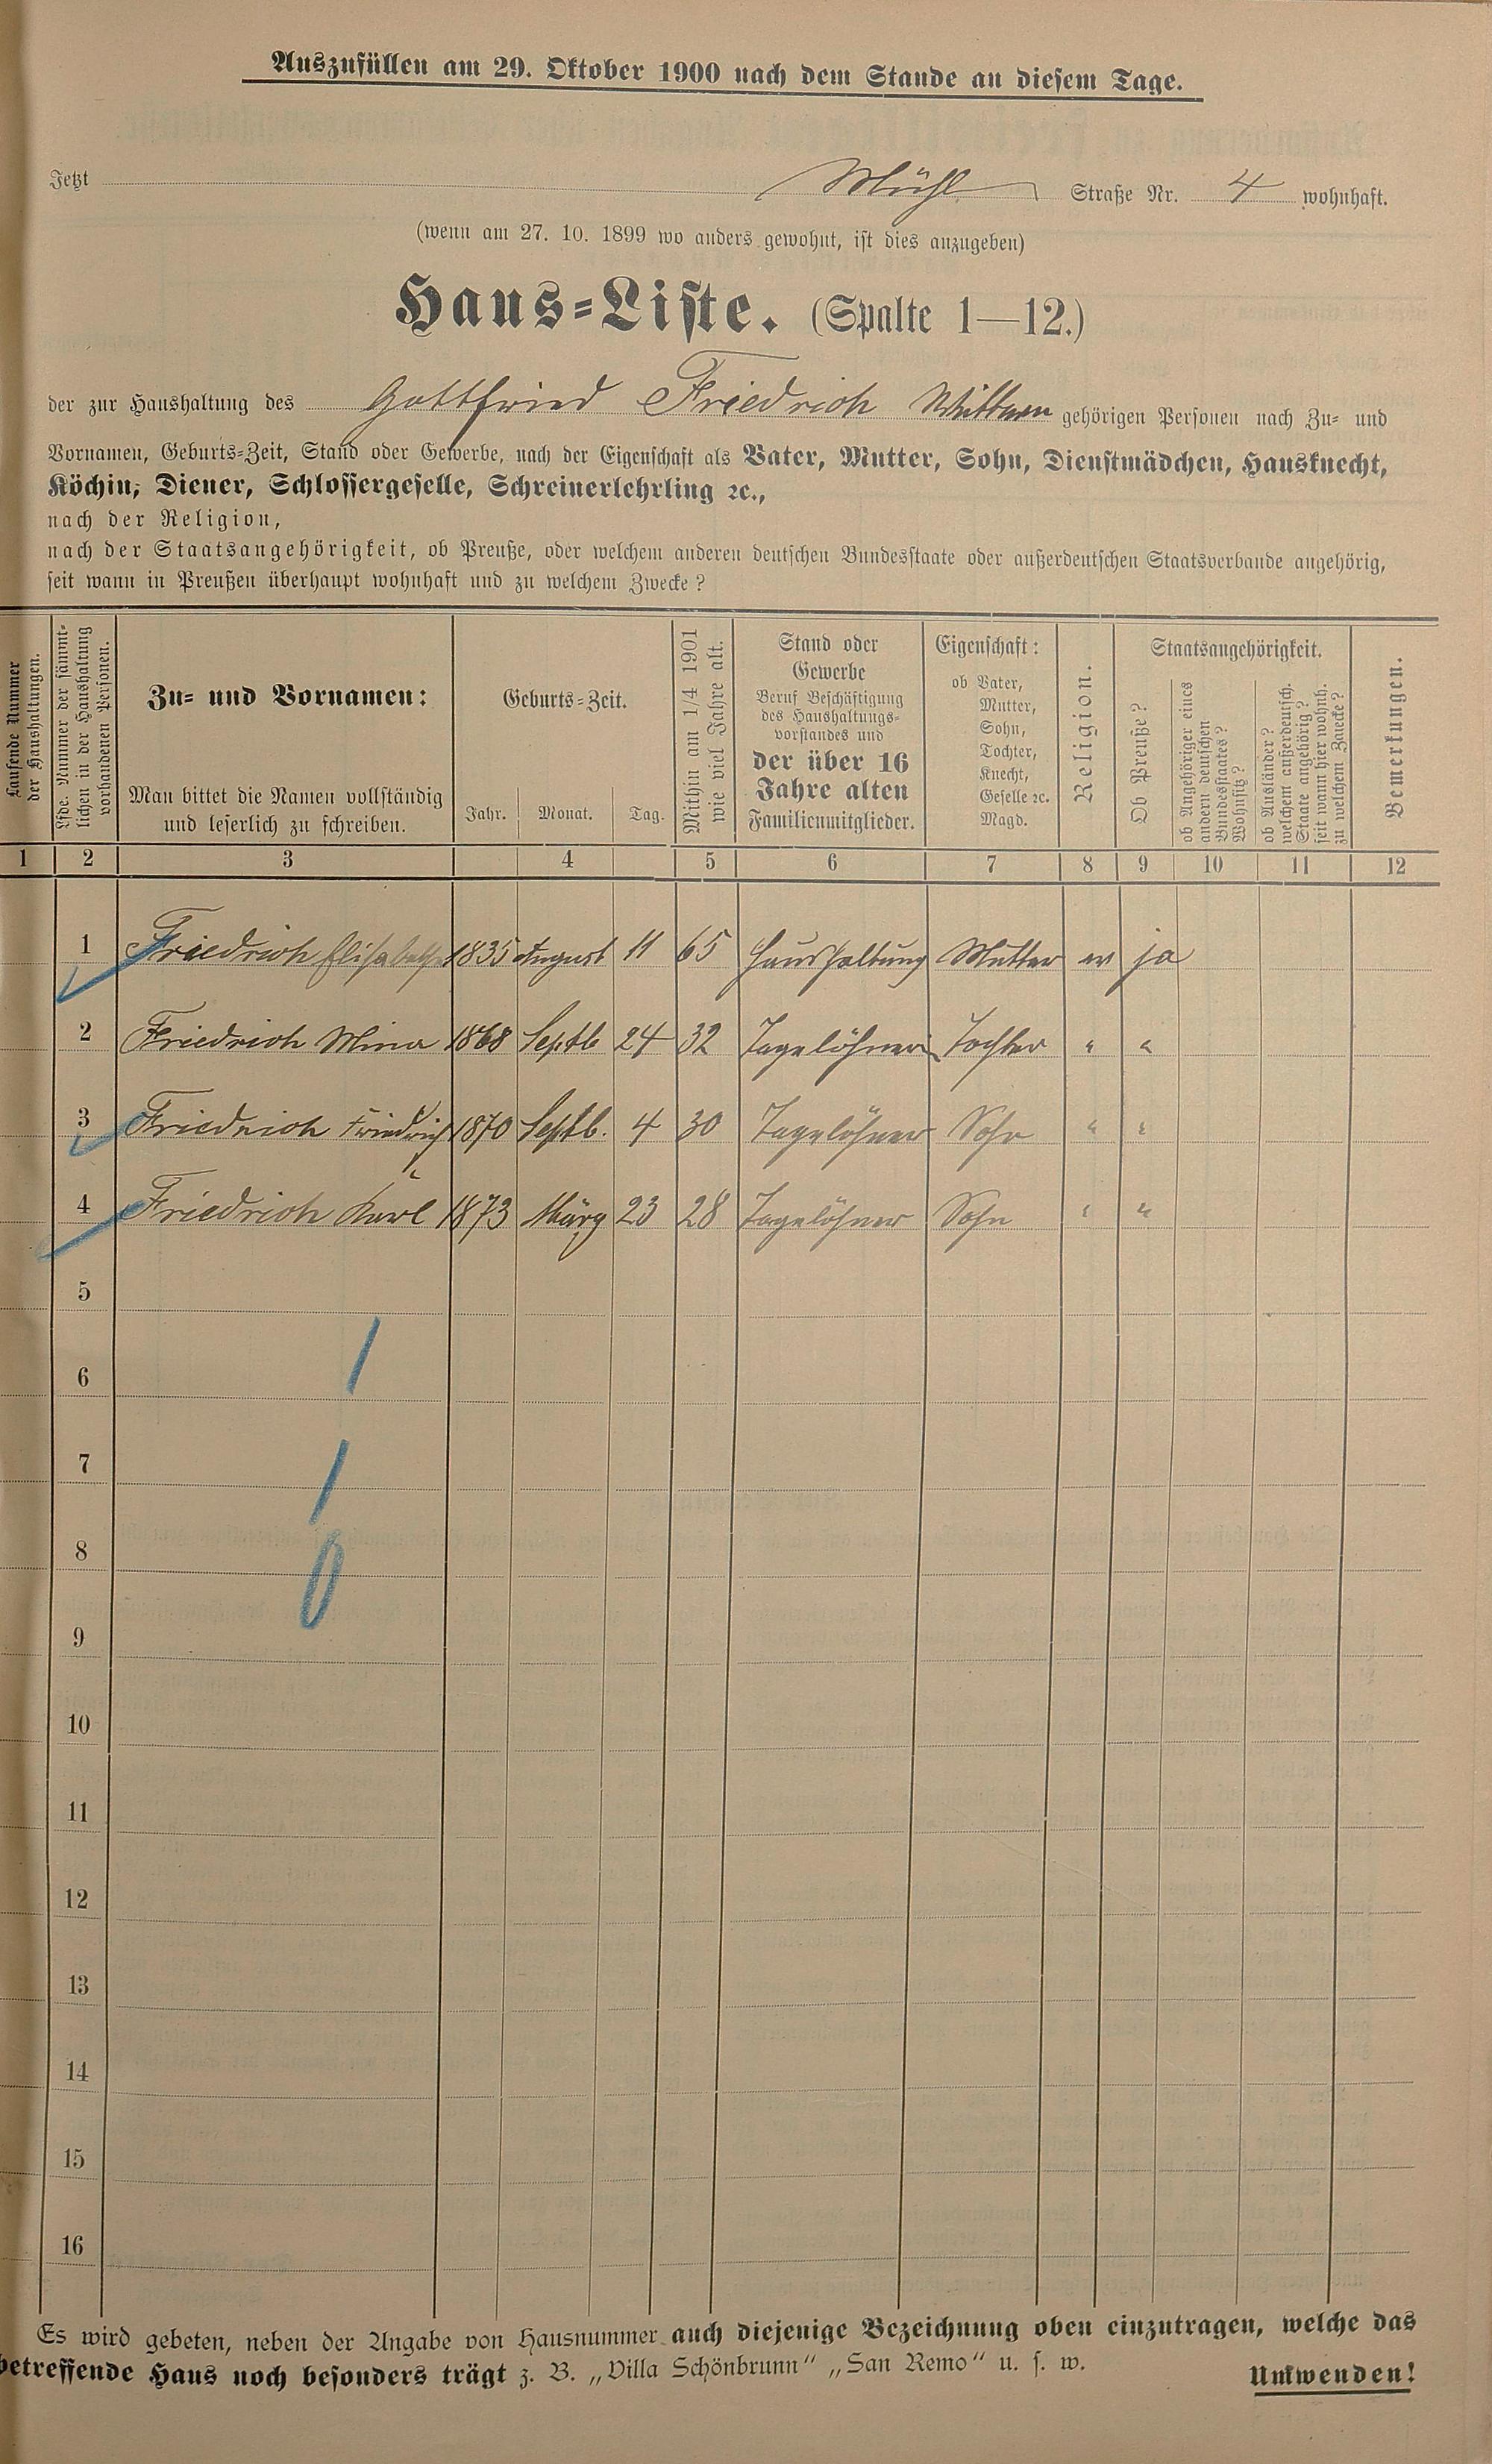 Auszufüllen am 29. Oktober 1900 nach dem Stande an diesem Tage.
Jetzt Mühl Straße Nr. 4 wohnhaft.
(wenn am 27. 10. 1899 wo anders gewohnt, ist dies anzugeben)
Haus-Liste. (Spalte 1—12.)
der zur Haushaltung des Gottfried Friedrich gehörigen Personen nach Zu- und
Vornamen, Geburts-Zeit, Stand oder Gewerbe, nach der Eigenschaft als Vater, Mutter, Sohn, Dienstmädchen, Hausknecht,
Köchin, Diener, Schlossergeselle, Schreinerlehrling ꝛc.,
nach der Religion,
nach der Staatsangehörigkeit, ob Preuße, oder welchem anderen deutschen Bundesstaate oder außerdeutschen Staatsverbande angehörig,
seit wann in Preußen überhaupt wohnhaft und zu welchem Zwecke?
Laufende Nummer
der Haushaltungen.
Lfde. Nummer der sämmt-
lichen in der Haushaltung
vorhandenen Personen.
Zu- und Vornamen:
Man bittet die Namen vollständig
und leserlich zu schreiben.
Geburts-Zeit.
Jahr. Monat. Tag.
Mithin am 1/4 1901
wie viel Jahre alt.
Stand oder
Gewerbe
Beruf Beschäftigung
des Haushaltungs-
vorstandes und
der über 16
Jahre alten
Familienmitglieder.
Eigenschaft:
ob Vater,
Mutter,
Sohn,
Tochter,
Knecht,
Geselle ꝛc.
Magd.
Religion.
Staatsangehörigkeit.
Ob Preuße?
ob Angehöriger eines
andern deutschen
Bundesstaates?
Wohnsitz?
ob Ausländer?
welchem außerdeutsch.
Staate angehörig?
seit wann hier wohnh.
zu welchem Zwecke?
Bemerkungen.
1 2 3 4 5 6 7 8 9 10 11 12
1 Friedrich Elisabetha 1835 August 11 65 Haushaltung Mutter ev ja
2 Friedrich Mina 1868 Septb 24 32 Tagelöhnerin Tochter " "
3 Friedrich Friedrich 1870 Septb. 4 30 Tagelöhner Sohn " "
4 Friedrich Karl 1873 März 23 28 Tagelöhner Sohn " "
5
6
7
8
9
10
11
12
13
14
15
16
Es wird gebeten, neben der Angabe von Hausnummer auch diejenige Bezeichnung oben einzutragen, welche das
betreffende Haus noch besonders trägt z. B. „Villa Schönbrunn" „San Remo" u. s. w.
Umwenden!